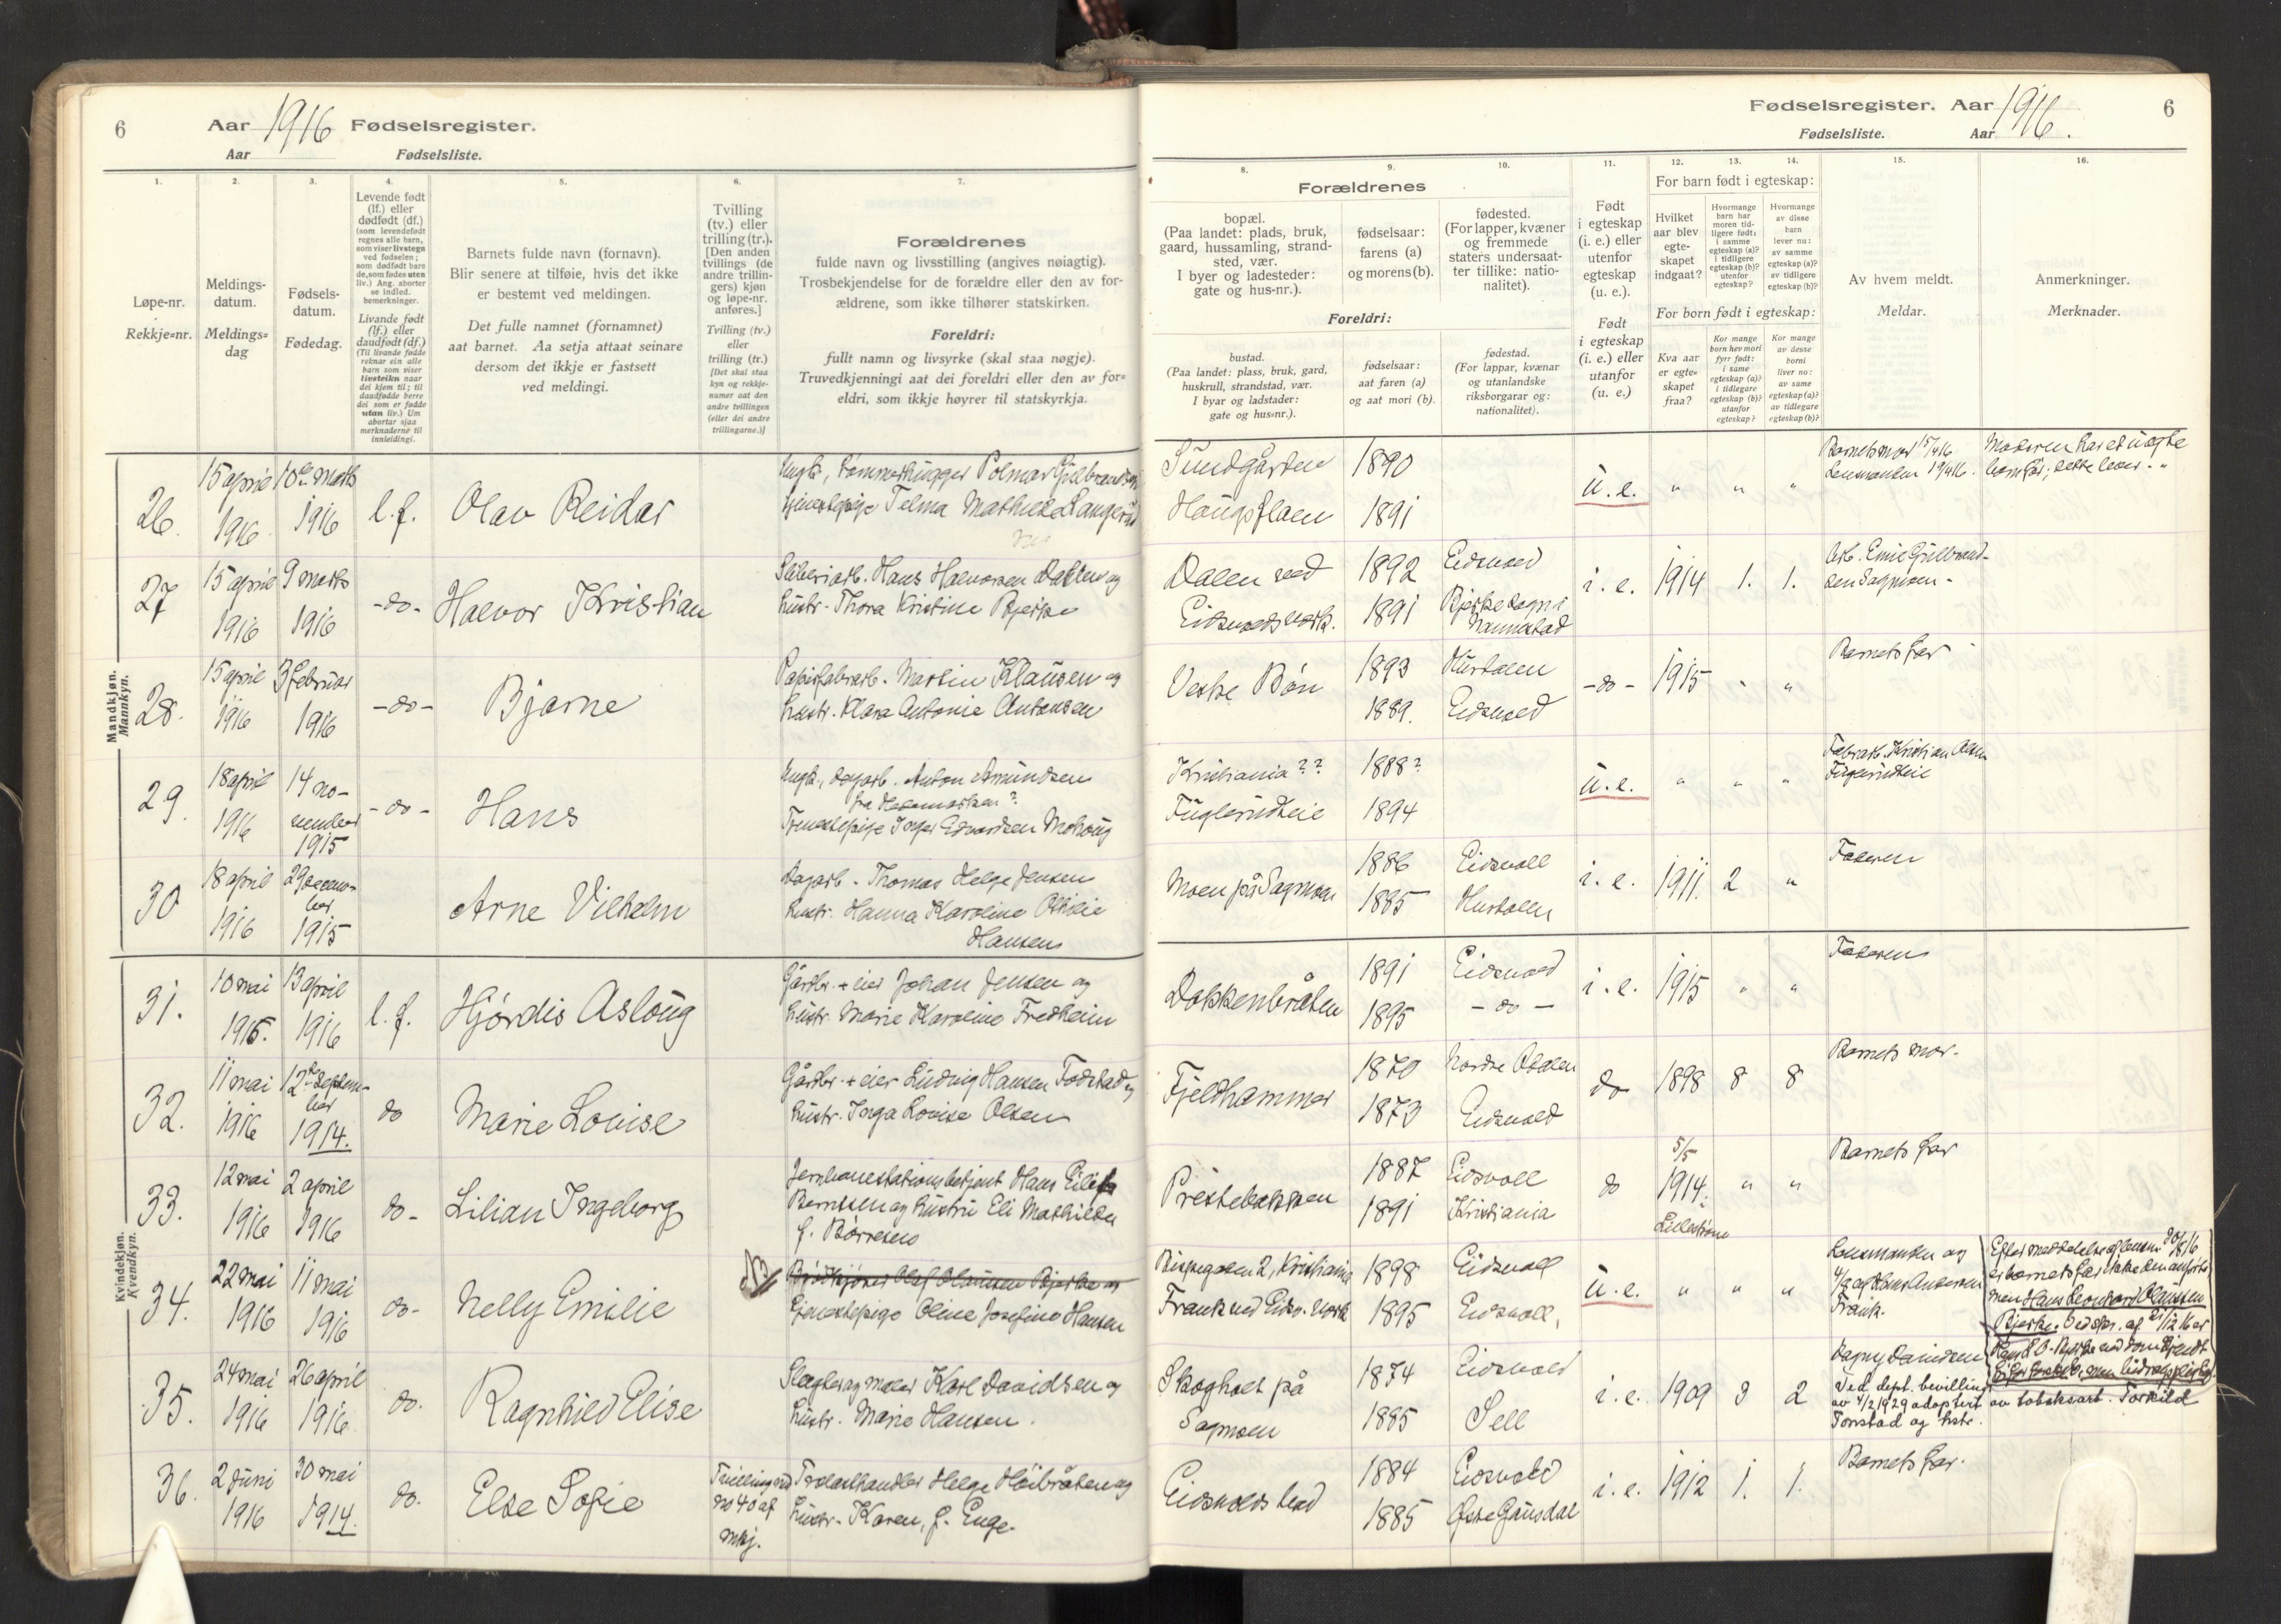 6
Aar 1916 Fødselsregister.
Aar
Fødselsliste.
1.
2.
3.
4.
5.
6.
7.
Løpe-nr.
Rekkje=nr.
Meldings-
datum.
Meldings=
dag
Fødsels-
datum.
Fødedag.
Levende født
(lf.) eller
dødfødt (df.)
(som levendefødt
regnes alle barn,
som viser livstegn
ved fødselen;
som dødfødt bare
de, som fødes uten
liv.) Ang. aborter
se indled.
bemerkninger.
Livande født
(lf.) eller
daudfødt (df.)
(Til livande fødde
reknar ein alle
barn som viser
livsteikn naar
dei kjem til; til
daudfødde berre
dei som er fødde
utan liv.) Um
abortar sjaa
merknaderne til
innleidingi.
Barnets fulde navn (fornavn).
Blir senere at tilføie, hvis det ikke
er bestemt ved meldingen.
Det fulle namnet (fornamnet)
aat barnet. Aa setja attaat seinare
dersom det ikkje er fastsett
ved meldingi.
Tvilling
(tv.) eller
trilling (tr.).
[Den anden
tvillings (de
andre trillin-
gers) kjøn
og løpe-nr.
anføres.]
Tvilling (tv.)
eller
trilling (tr.)
[Det skal staa
kyn og rekkje-
numer aat den
andre tvillingen
(eller dei andre
trillingarne.)]
Forældrenes
fulde navn og livsstilling (angives nøiagtig).
Trosbekjendelse for de forældre eller den av for-
ældrene, som ikke tilhører statskirken.
Foreldri:
fullt namn og livsyrke (skal staa nøgje).
Truvedkjenningi aat dei foreldri eller den av for=
eldri, som ikkje høyrer til statskyrkja.
Mandkjøn.
Mannkyn.
26.
15 april
1916
10de marts
1916
l.f.
Olav Reidar
Ungk., tømmerhugger Polmar Gulbrandsen
tjenestepige Telma Mathilde Langerud
27
15 april
1916
9 marts
1916
-do-
Halvor Kristian
Sliberiarb. Hans Halvorsen Dalen og
hustr. Thora Kristine Bjerke
28.
15 april
1916
3 februar
1916
-do-
Bjarne
Papirfabrarb. Martin Klausen og
hustr. Klara Antonie Antonsen
29.
18 april
1916
14 no-
vember
1915
-do-
Hans
Ungk., dagarb. Anton Amundsen
fra Hedemarken?
Tjenestepige Inger Edvardsen Mohaug
30
18 april
1916
29 decem-
ber
1915
Arne Vilhelm
Dagarb. Thomas Helge Jensen
hustr. Hanna Karoline Otilie
Hansen
Kvindekjøn.
Kvendkyn.
31.
10 mai
1916.
13 april
1916
l.f.
Hjördis Aslöug
Gårdbr. + eier Johan Jensen og
hustr. Marie Karoline Fredheim
32.
11 mai
1916
12te septem-
ber
1914.
do
Marie Louise
Gårdbr. + eier Ludvig Hansen Fodstad og
hustr. Inga Lovise Olsen
33.
12 mai
1916
2 april
1916
do-
Lilian Ingeborg
Jernbanestationsbetjent Hans Eilif
Berntsen og hustru Eli Mathilde
f. Börresen
34.
22 mai
1916
11 mai
1916
do-
Nelly Emilie
Brödkjører Olaf Olaussen Bjerke og
tjenestepige Oline Josefine Hansen
35.
24 mai
1916
26 april
1916
do.
Ragnhild Elise
Slagter og maler Karl Davidsen og
hustr. Marie Hansen.
36.
2 juni
1916
30 mai
1914.
do.
Else Sofie
Tvilling ved
no 40 af
mkj.
Trælasthandler Helge Höibråten og
hustr. Karen, f. Enge.
Fødselsregister. Aar 1916.
6
Fødselsliste.
Aar
8.
9.
10.
11.
12.
13.
14.
15.
16.
Forældrenes
bopæl.
(Paa landet: plads, bruk,
gaard, hussamling, strand-
sted, vær.
I byer og ladesteder:
gate og hus-nr.).
fødselsaar:
farens (a)
og morens (b).
fødested.
(For lapper, kvæner
og fremmede
staters undersaat-
ter tillike: natio-
nalitet).
Foreldri:
bustad.
(Paa landet: plass, bruk, gard,
huskrull, strandstad, vær.
I byar og ladstader:
gate og hus=nr.).
fødselsaar:
aat faren (a)
og aat mori (b).
fødestad.
(For lappar, kvænar
og utanlandske
riksborgarar og:
nationalitet).
Født
i egteskap
(i. e.) eller
utenfor
egteskap
(u. e.).
Født
i egteskap
(i. e.) eller
utanfor
(u. e.)
For barn født i egteskap:
Hvilket
aar blev
egte-
skapet
indgaat?
Hvormange
barn har
moren tid-
ligere født:
i samme
egteskap (a)?
i tidligere
egteskap (b)?
utenfor
egteskap?
Hvormange
av disse
barn
lever nu:
av samme
egteskap (a)?
av tidligere
egteskap (b)?
For born født i egteskap:
Kva aar
er egte=
skapet
fraa?
Kor mange
born hev mori
fyrr født:
i same
egteskap (a)?
i tidlegare
egteskap (b)?
utanfor
egteskap?
Kor mange
av desse
borni
liver no:
av same
egteskap (a)?
av tidlegare
egteskap (b)?
Av hvem meldt.
Meldar.
Anmerkninger.
Merknader.
Sundgården
Haugsflaen
1890
1891
u.e.
" " "
Barnets mor 15/4 16
Lensmanden 19/4 16.
Moderen har et uægte
barn för; dette lever. "
Dalen ved
Eidsvoldsverk.
1892
1891
Eidsvold
Bjerke sogn i
Nannestad
i.e.
1914
1.
1.
Arb. Emil Gulbrand-
sen Sagmoen-
Vestre Bön
1893
1889.
Hurdalen
Eidsvold
-do-
1915
" "
Barnets far
Kristiania??
Fuglerudheie
1888?
1894
u.e.
" " "
Fabrarb. Kristian Olsen
Fuglerudheie
Moen på Sagmoen
1886
1885
Eidsvoll
Hurdalen
i.e.
1911.
2
"
Faderen
Dokkenbråten
1891
1895
Eidsvold
- do -
i.e.
1915
" "
Faderen
Fjeldhammer
1870
1873
Nordre Odalen
Eidsvold
do
1898
8
8
Barnets mor.
Prestebakken
1887
1891
Eidsvoll
Kristiania
do
5/5
1914.
Lilleström
" "
Barnets far
Bispegaten 2, Kristiania
Frank ved Eidsv. Verk
1898
1895
Eidsvoll
Eidsvoll.
u.e.
" " "
Lensmanden og
4/9 af Hans Andersen
Frank.
Efter meddelelse af lensm. 30/8 16
er barnets far ikke den anförte
men Hans Leonhard Olaussen
Bjerke.
Skogholt på
Sagmoen
1874
1885
Eidsvold
Sell
i.e.
1909
3
2
Dagny Davidsen
Ved dept. bevilling
av 4/2 1929 adoptert av tobaksarb. Torkild
Tonstad og hstr.
Eidsvolds bad
1884
1885
Eidsvold
Östre Gausdal
i.e.
1912
1.
1.
Barnets far.